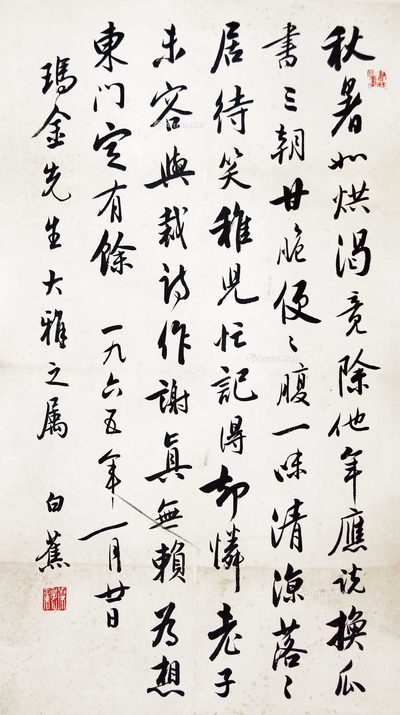 秋暑如烘渴竟除他年應說換瓜
書三朝甘脆便〻腹一味清涼落〻
居待笑稚兒忙記得却憐老子
未容與裁詩作謝真無賴為想
東門定有餘 一九六五年一月廿日
瑪金先生大雅之属 白蕉